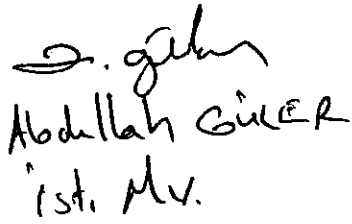 Abdullah GÜLER
İst. Mv.